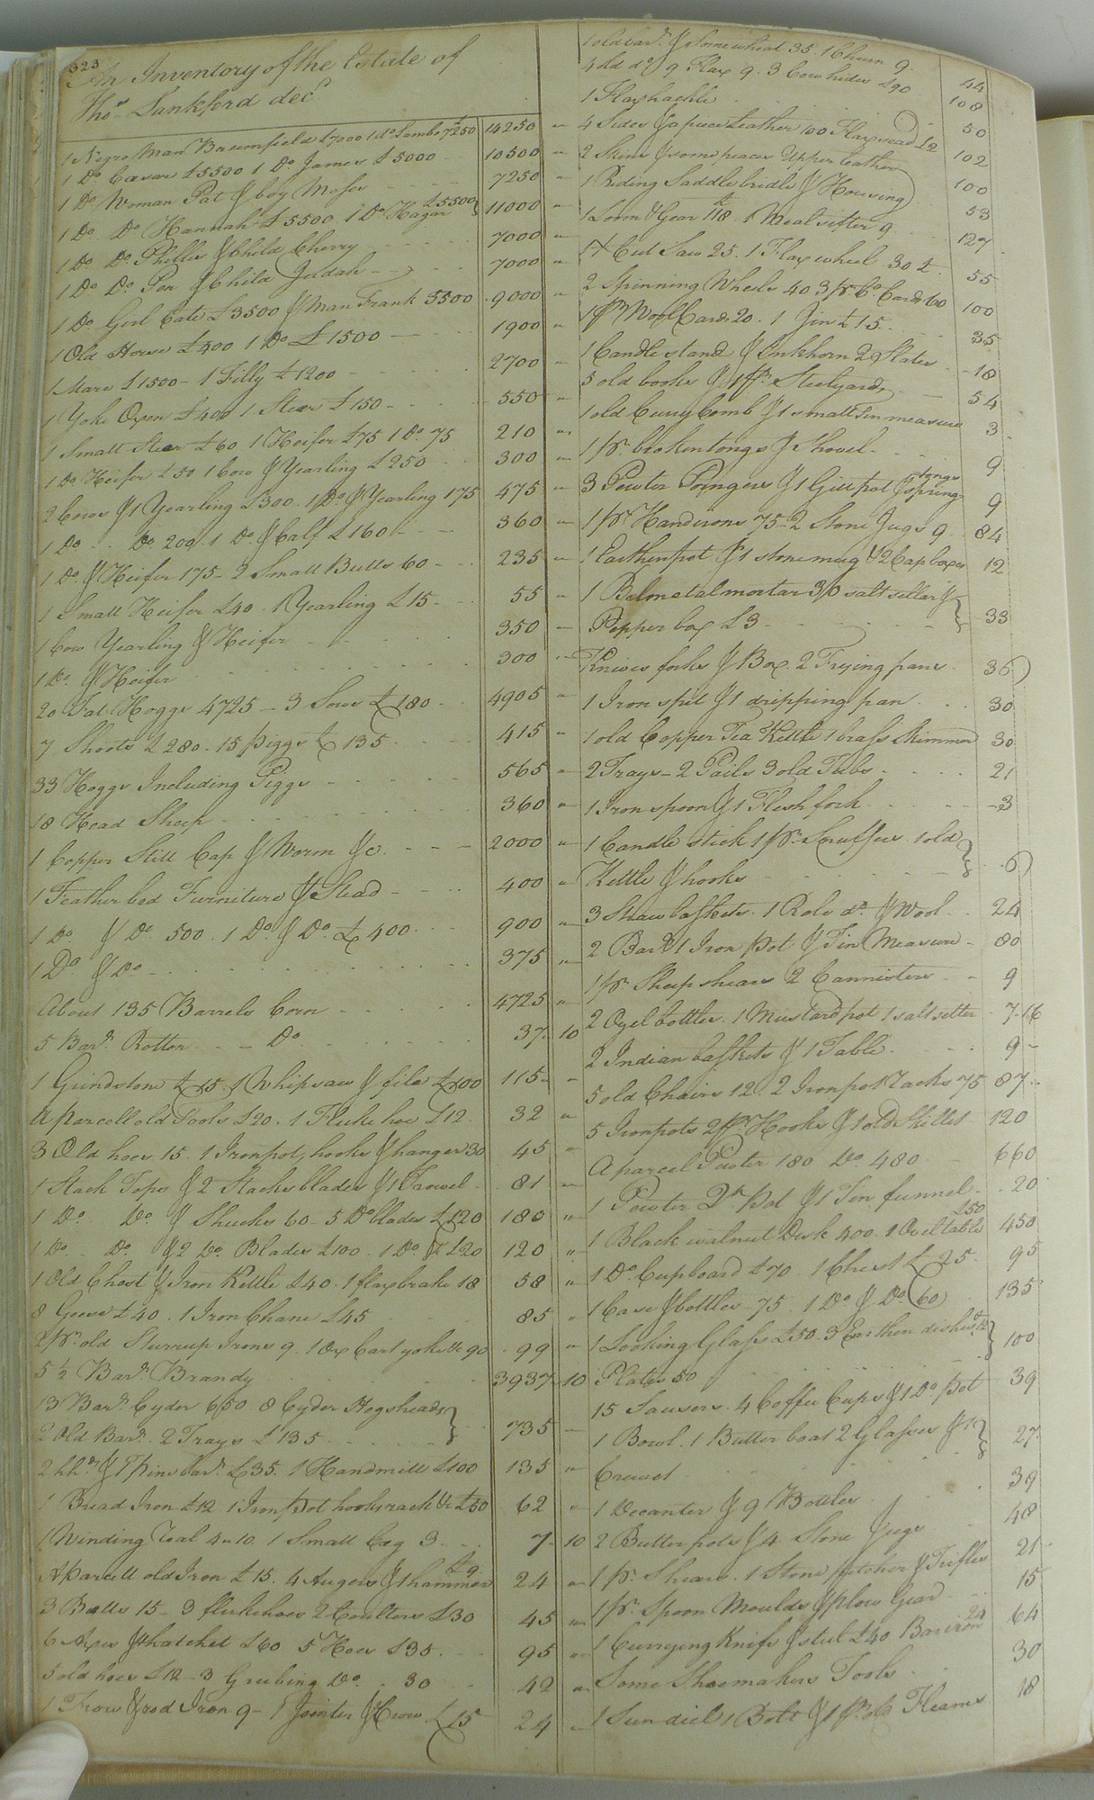 323
An Inventory of the Estate of
Thos Lankford decd
1 Negro Man Broomfield £7000 1 do Sambo £7250 14250
1 Do Caesar £5500 1 Do James £5000 10500
1 Do Woman Pat & boy Moses 7250
1 Do Do Hannah £5500 1 Do Hagar £5500 11000
1 Do Do Phillis & Child Cherry 7000
1 Do Do Pen & Child Judah 7000
1 Do Girl Cate £3500 & Man Frank 5500 9000
1 Old Horse £400 1 Do £1500 1900
1 Mare £1500 - 1 Filly £1200 2700
1 Yoke Oxen £400 1 Steer £150 550
1 Small Steer £60 1 Heifer £75 1 Do 75 210
1 Do Heifer £50 1 Cow & Yearling £250 300
2 Cows & 1 Yearling £300. 1 Do & Yearling 175 475
1 Do Do 200. 1 Do & Calf £160 360
1 Do & Heifer 175 - 2 Small Bulls 60 235
1 Small Heifer £40. 1 Yearling £15 55
1 Cow Yearling & Heifer 350
1 Do & Heifer 300
20 Fat Hoggs 4725 - 3 Sows £180 4905
7 Shoats £280. 15 piggs £135 415
33 Hoggs Including Piggs 565
18 Head Sheep 360
1 Copper Still Cap & Worm &c. 2000
1 Feather bed Furniture & Stead 400
1 Do & Do 500. 1 Do & Do £400 900
1 Do & Do 375
About 135 Barrels Corn 4725
5 Barls Rotton Do 37. 10
1 Grindstone £15. 1 Whipsaw & file £100 115
A parcell old Tools £20. 1 Fluke hoe £12 32
3 Old hoes 15. 1 Ironpot, hooks & hanger 30 45
1 Stack Tops & 2 Stacks blades & 1 81
1 Do Do & Shucks 60 - 5 Do blades £120 180
1 Do Do & 2 Do Blades £100. 1 Do £20 120
1 Old Chest & Iron Kettle £40. 1 flax brake 18 58
8 Geese £40. 1 Iron Chane £45 85
2 pr old Sturrup Irons 9. 1 Ox Cart yoke &c 90 99
5½ Barls Brandy 3937 10
13 Barls Cyder 650 8 Cyder Hogsheads
2 Old Barls 2 Trays £135 735
2 & 1 barl £35. 1 Handmill £100 135
1 Bread Iron £12 1 Iron pot hooks rack &c £50 62
1 Winding 4 10. 1 Small Cag 3 7. 10
A parcell old Iron £15. 4 Augers & 1 hammer £9 24
3 Bells 15 - 3 flukehoes 2 Coulters £30 45
6 Axes & hatchet £60 5 Hoes £35. 95
5 old hoes £12 - 3 Grubing Do 30 42
1 Frow & rod Iron 9 - 1 Jointer & Crow £15 24
1 old barl & some wheat 35. 1 Churn 9. 44
4 hd do 9 Flax 9. 3 Cow hides £90 108
1 Flaxhackle 50
4 Sides & a piece Leather 100 Flaxseed £2 102
2 Skins & some peaces Upper leather 100
1 Riding Saddle bridle & Housing 53
1 Loom & Gear £118. 1 Meal sifter 9 127
1 X Cut Saw 25. 1 Flax wheel 30 £ 55
2 Spinning Wheels 40 3 pr Co Cards 60 100
1 pr Wool Cards 20. 1 Gin £15 35
1 Candle stand & Inkhorn 2 Slates 18
5 old books & 1 pr Steelyards 54
1 old Curry Comb & 1 small tin measure 3
1 pr broken tongs & Shovel 9
3 Pewter Poringers & 1 Gill pot & spring tongs 9
1 pr Handirons 75 - 2 Stone Jugs 9. 84
1 Earthenpot & 1 stone mug & 2 Cap boxes 12
1 Belmetal mortar 30 salt sellar &
Pepper box £3 33
Knives forks & Box. 2 Frying pans 36
1 Iron spit & 1 dripping pan 30
1 old Copper Tea Kettle 1 brass Skimmer 30
2 Trays - 2 Pails 3 old Tubs 21
1 Iron spoon & 1 Flesh fork 3
1 Candle stick 1 pr Snuffers 1 old
Kettle & hooks 6
3 Straw baskets. 1 Role do & Wool 24
2 Barls 1 Iron Pot & Tin Measure 80
1 pr Sheep shears 2 Cannisters 9
2 Oyel bottles. 1 Mustard pot 1 salt setter 7. 16
2 Indian baskets & 1 Table 9
5 old Chairs 12. 2 Ironpot racks 75 87
5 Ironpots 2 pr Hooks & 1 old Skillet 120
A parcel Pewter 180 Do 480 660
1 Pewter 2 qt Pot & 1 Tin funnel 20
1 Black walnut Desk 400. 1 Ovel table £50 450
1 Do Cupboard £70. 1 Chest £25. 95
1 Case & bottles 75. 1 Do & Do (60) 135
1 Looking Glass £50. 3 Earthen dishes
Plates 50 100
15 Sausers. 4 Coffee Cups & 1 Do Pot 39
1 Bowl. 1 Butter boat 2 Glasses & 1
Crewet 27
1 Decanter & 9 Bottles 39
2 Butter pots & 4 Stone Jugs 48
1 pr Shears. 1 Stone pitcher & Trifles 21
1 pr Spoon Moulds & plow Gear 15
1 Currying Knife & steel £40 Bar iron 24 64
Some Shoemakers Tools 30
1 Sun diel 1 Bolt & 1 pr old Fleames 18